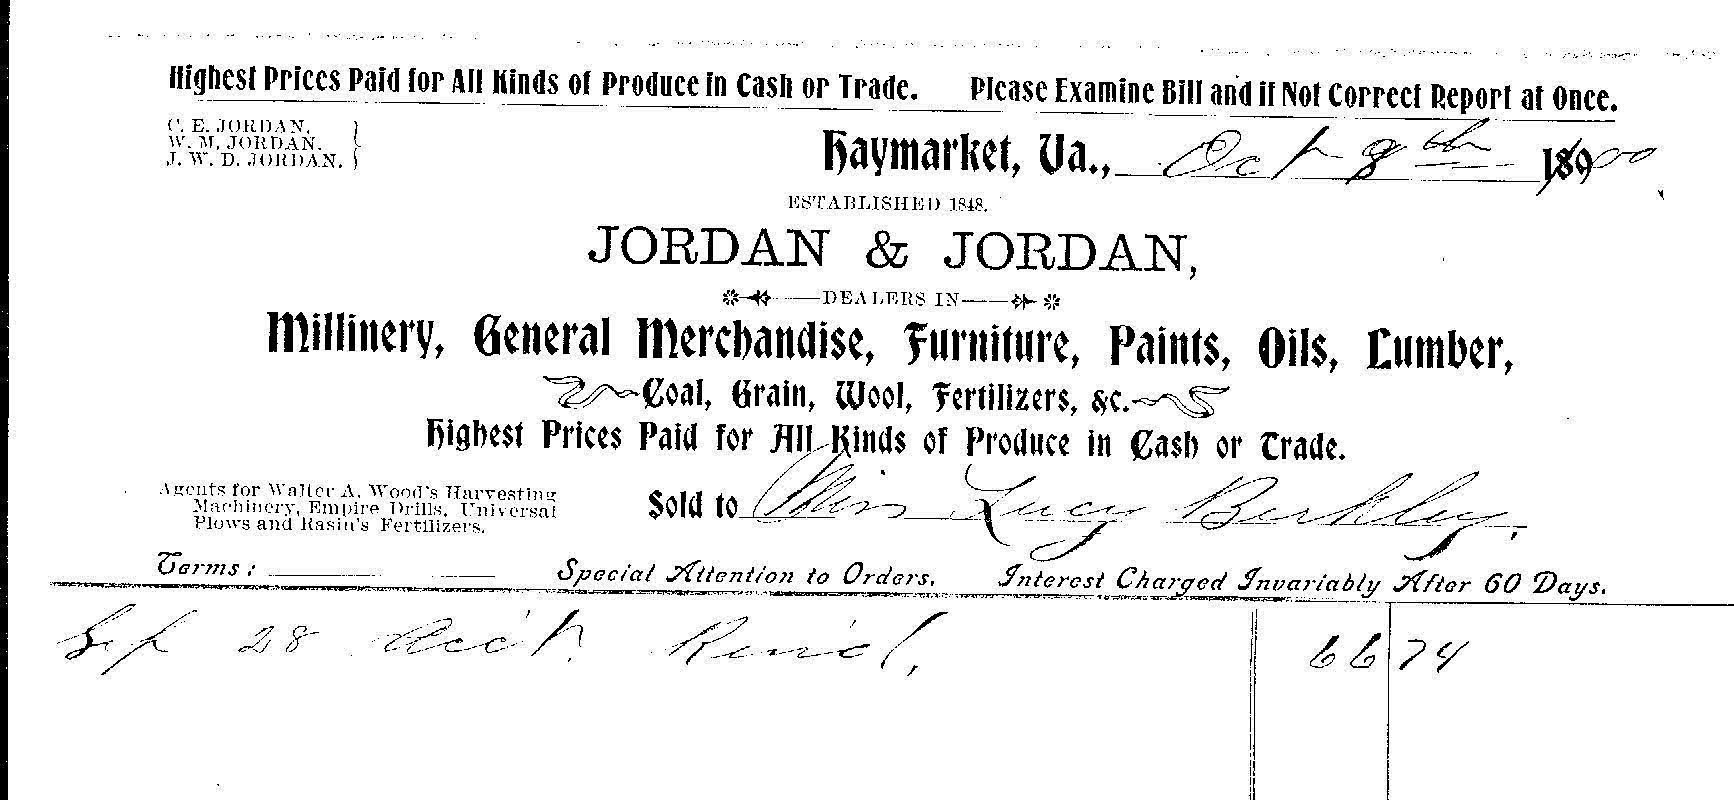 Highest Prices Paid for All Kinds of Produce in Cash or Trade. Please Examine Bill and if Not Correct Report at Once.
C. E. JORDAN,
W. M. JORDAN.
J. W. D. JORDAN.
Haymarket, Va., Oct 8th 1900
ESTABLISHED 1848.
JORDAN & JORDAN,
DEALERS IN
Millinery, General Merchandise, Furniture, Paints, Oils, Lumber,
Coal, Grain, Wool, Fertilizers, &c.
Highest Prices Paid for All Kinds of Produce in Cash or Trade.
Agents for Walter A. Wood's Harvesting
Machinery, Empire Drills, Universal
Plows and Rasin's Fertilizers.
Sold to Miss Lucy Berkley,
Terms: Special Attention to Orders. Interest Charged Invariably After 60 Days.
Sep 28 Acct. Ren'd, 66 74